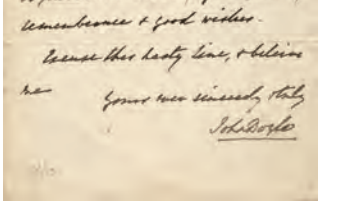 remembrance & good wishes.
Excuse this hasty line, & believe
me
yours ever sincerely & truly
John Doyle